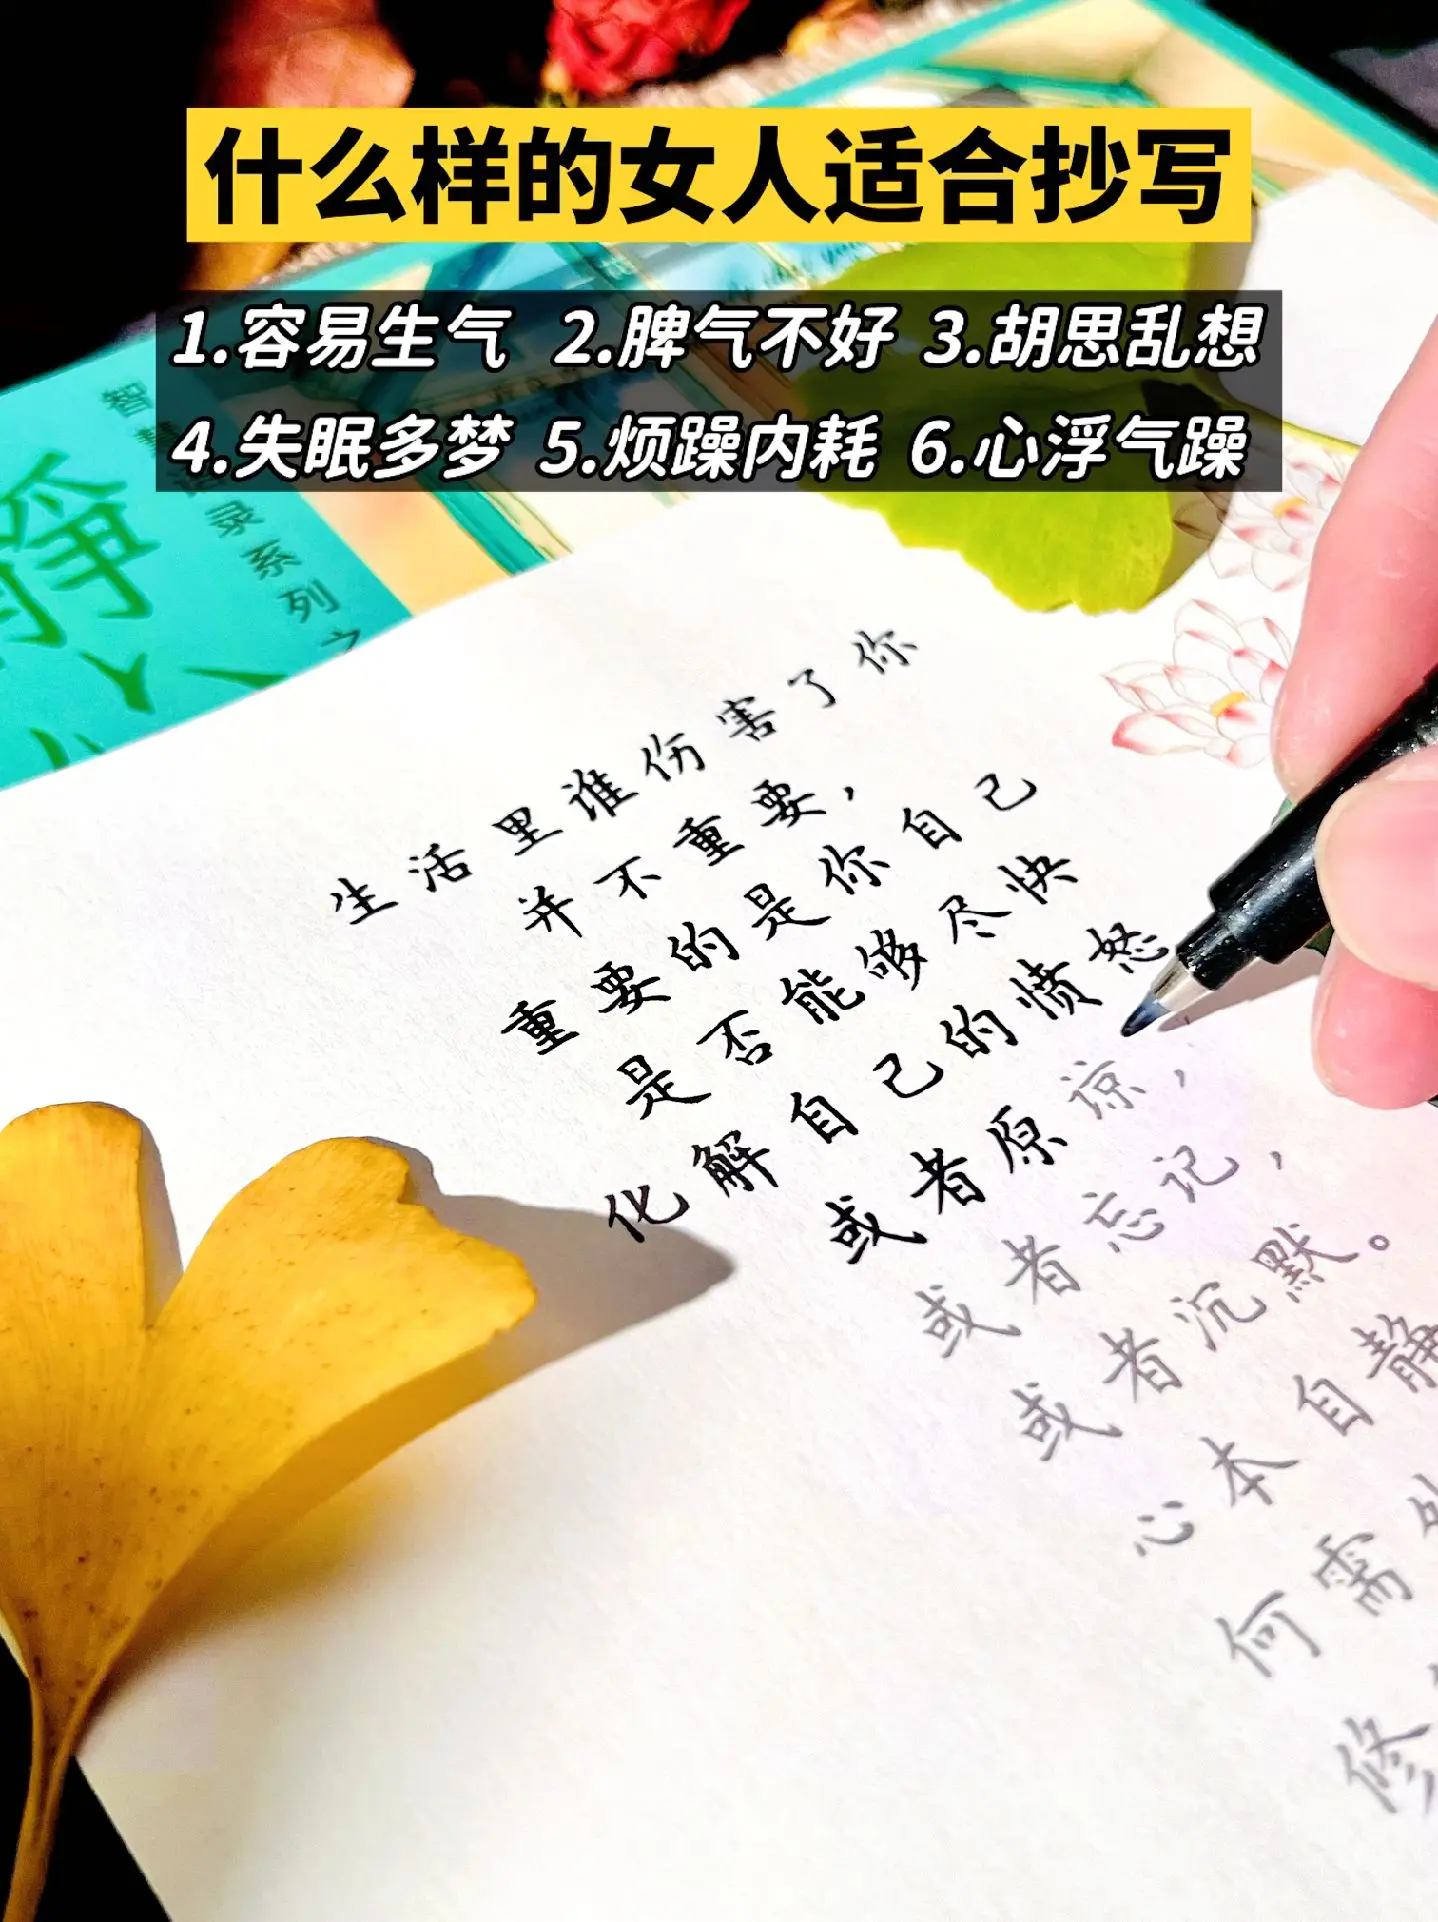 什么样的女人适合抄写
1.容易生气 2.脾气不好 3.胡思乱想
4.失眠多梦 5.烦躁内耗 6.心浮气躁
智慧语录系列之
静心
生活里谁伤害了你
并不重要，
重要的是你自己
是否能够尽快
化解自己的愤怒
或者原谅，
或者忘记，
或者沉默。
心本自静
何需外
修